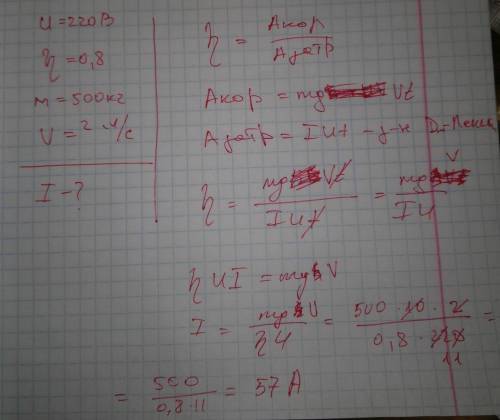 U = 220В
η = 0,8
m = 500кг
V = 2 м/с
I - ?
η = Акор / Азатр
Акор = mg Vt
Азатр = IUt - з-н Дж-Ленца
η = mg Vt / IUt = mg V / IU
η UI = mg V
I = mg V / ηU = 500 · 10 · 2 / 0,8 · 220 =
11
= 500 / 0,8 · 11 = 57 А